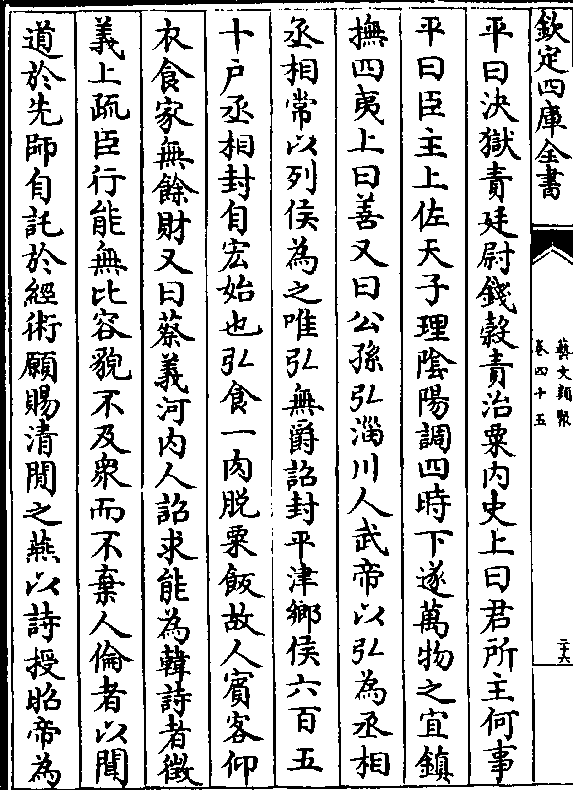 欽定四庫全書
藝文類聚
卷四十五
二十六
平曰決獄責廷尉錢穀責治粟内史上曰君所主何事
平曰臣主上佐天子理隂陽調四時下遂萬物之宜鎮
撫四夷上曰善又曰公孫弘淄川人武帝以弘為丞相
丞相常以列侯為之唯弘無爵詔封平津鄉侯六百五
十户丞相封自宏始也弘食一肉脱粟飯故人賔客仰
衣食家無餘財又曰蔡義河内人詔求能為韓詩者徵
義上疏臣行能無比容貌不及衆而不棄人倫者以聞
道於先師自託於經術願賜清閒之燕以詩授昭帝為